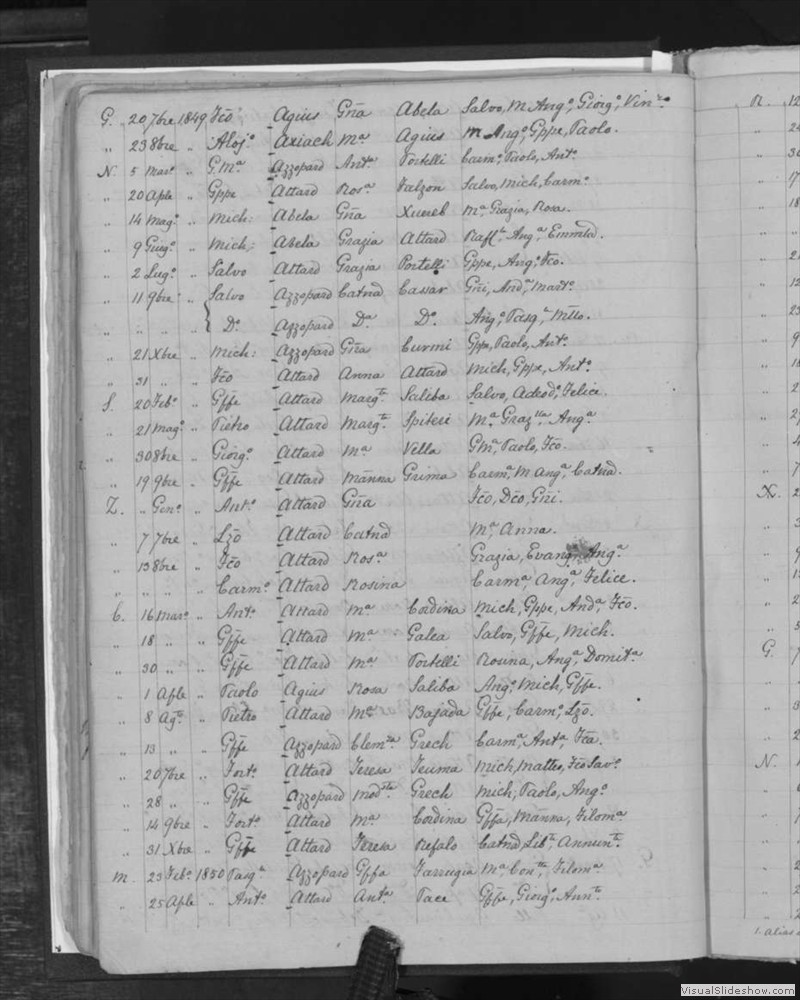 G. „ 20 7bre 1849 Fcõ Agius Gña Abela Salvo, M Angº, Giorgº, Vinzº
„ 23 8bre „ Alojº Axiach Mª Agius M Angº, Gppe, Paolo.
N. 5 Marº „ G. Mª Azzopard Antª Portelli Carmº, Paolo, Antº
„ 20 Aple „ Gppe Attard Rosª Falzon Salvo, Mich, Carmº
„ 14 Magº „ Mich: Abela Gña Xuereb Mª Grazia, Rosa.
„ 9 Giugº „ Mich: Abela Grazia Attard Angª
„ 2 Lugº „ Salvo Attard Grazia Portelli Gppe, Angº, Fcõ.
„ 11 9bre „ Salvo Azzopard Catnd Cassar Gñi, Andª, Martº
„ „ „ „ Dº Azzopard Dª Dº Angº, Pasqª, Mtto.
„ 21 Xbre „ Mich: Azzopard Gña Curmi Gppe, Paolo, Antº
„ 31 „ „ Fcõ Attard Anna Attard Mich, Gppe, Antº
S. 20 Febº „ Gffe Attard Margta Saliba Salvo, Adeodº, Felice.
„ 21 Magº „ Pietro Attard Margta Spiteri Mª Grazlla, Angª
„ 30 8bre „ Giorgº Attard Mª Vella GMª, Paolo, Fcõ.
„ 19 9bre „ Gffe Attard Mañna Grima Carmª, M Angª, Catnd.
Z. „ Genº „ Antº Attard Gña Fcõ, Dcõ, Gñi.
„ 7 7bre „ Lzõ Attard Catnd Mª Anna.
„ 13 8bre „ Fcõ Attard Rosª Grazia, Evangª, Angª
„ „ „ „ Carmº Attard Rosina Carmª, Angª, Felice.
C. 16 Marº „ Antº Attard Mª Cordina Mich, Gppe, Andª, Fcõ.
„ 18 „ „ Gffe Attard Mª Galea Salvo, Gffe, Mich.
„ 30 „ „ Gffe Attard Mª Portelli Rosina, Angª, Domitª
„ 1 Aple „ Paolo Agius Rosa Saliba Angº, Mich, Gffe.
„ 8 Agto „ Pietro Attard Mª Bajada Gffe, Carmº, Lzõ.
„ 13 „ „ Gffe Azzopard Clemta Grech Carmª, Antª, Fca.
„ 20 7bre „ Fortº Attard Teresa Teuma Mich, Matteo, Fcõ Savº
„ 28 „ „ Gffe Azzopard Modsta Grech Mich, Paolo, Angº
„ 14 9bre „ Fortº Attard Mª Cordina Gffa, Mañna, Filomª
„ 31 Xbre „ Gffe Attard Teresa Refalo Catnd, Libª, Annunta
M. 23 Febº 1850 Pasqº Azzopard Gffa Farrugia Mª Contta, Filomª
„ 25 Aple „ Antº Attard Antª Pace Gffe, Giorgº, Annta
R.
X.
G.
N.
1. alias
VisualSlideshow.com